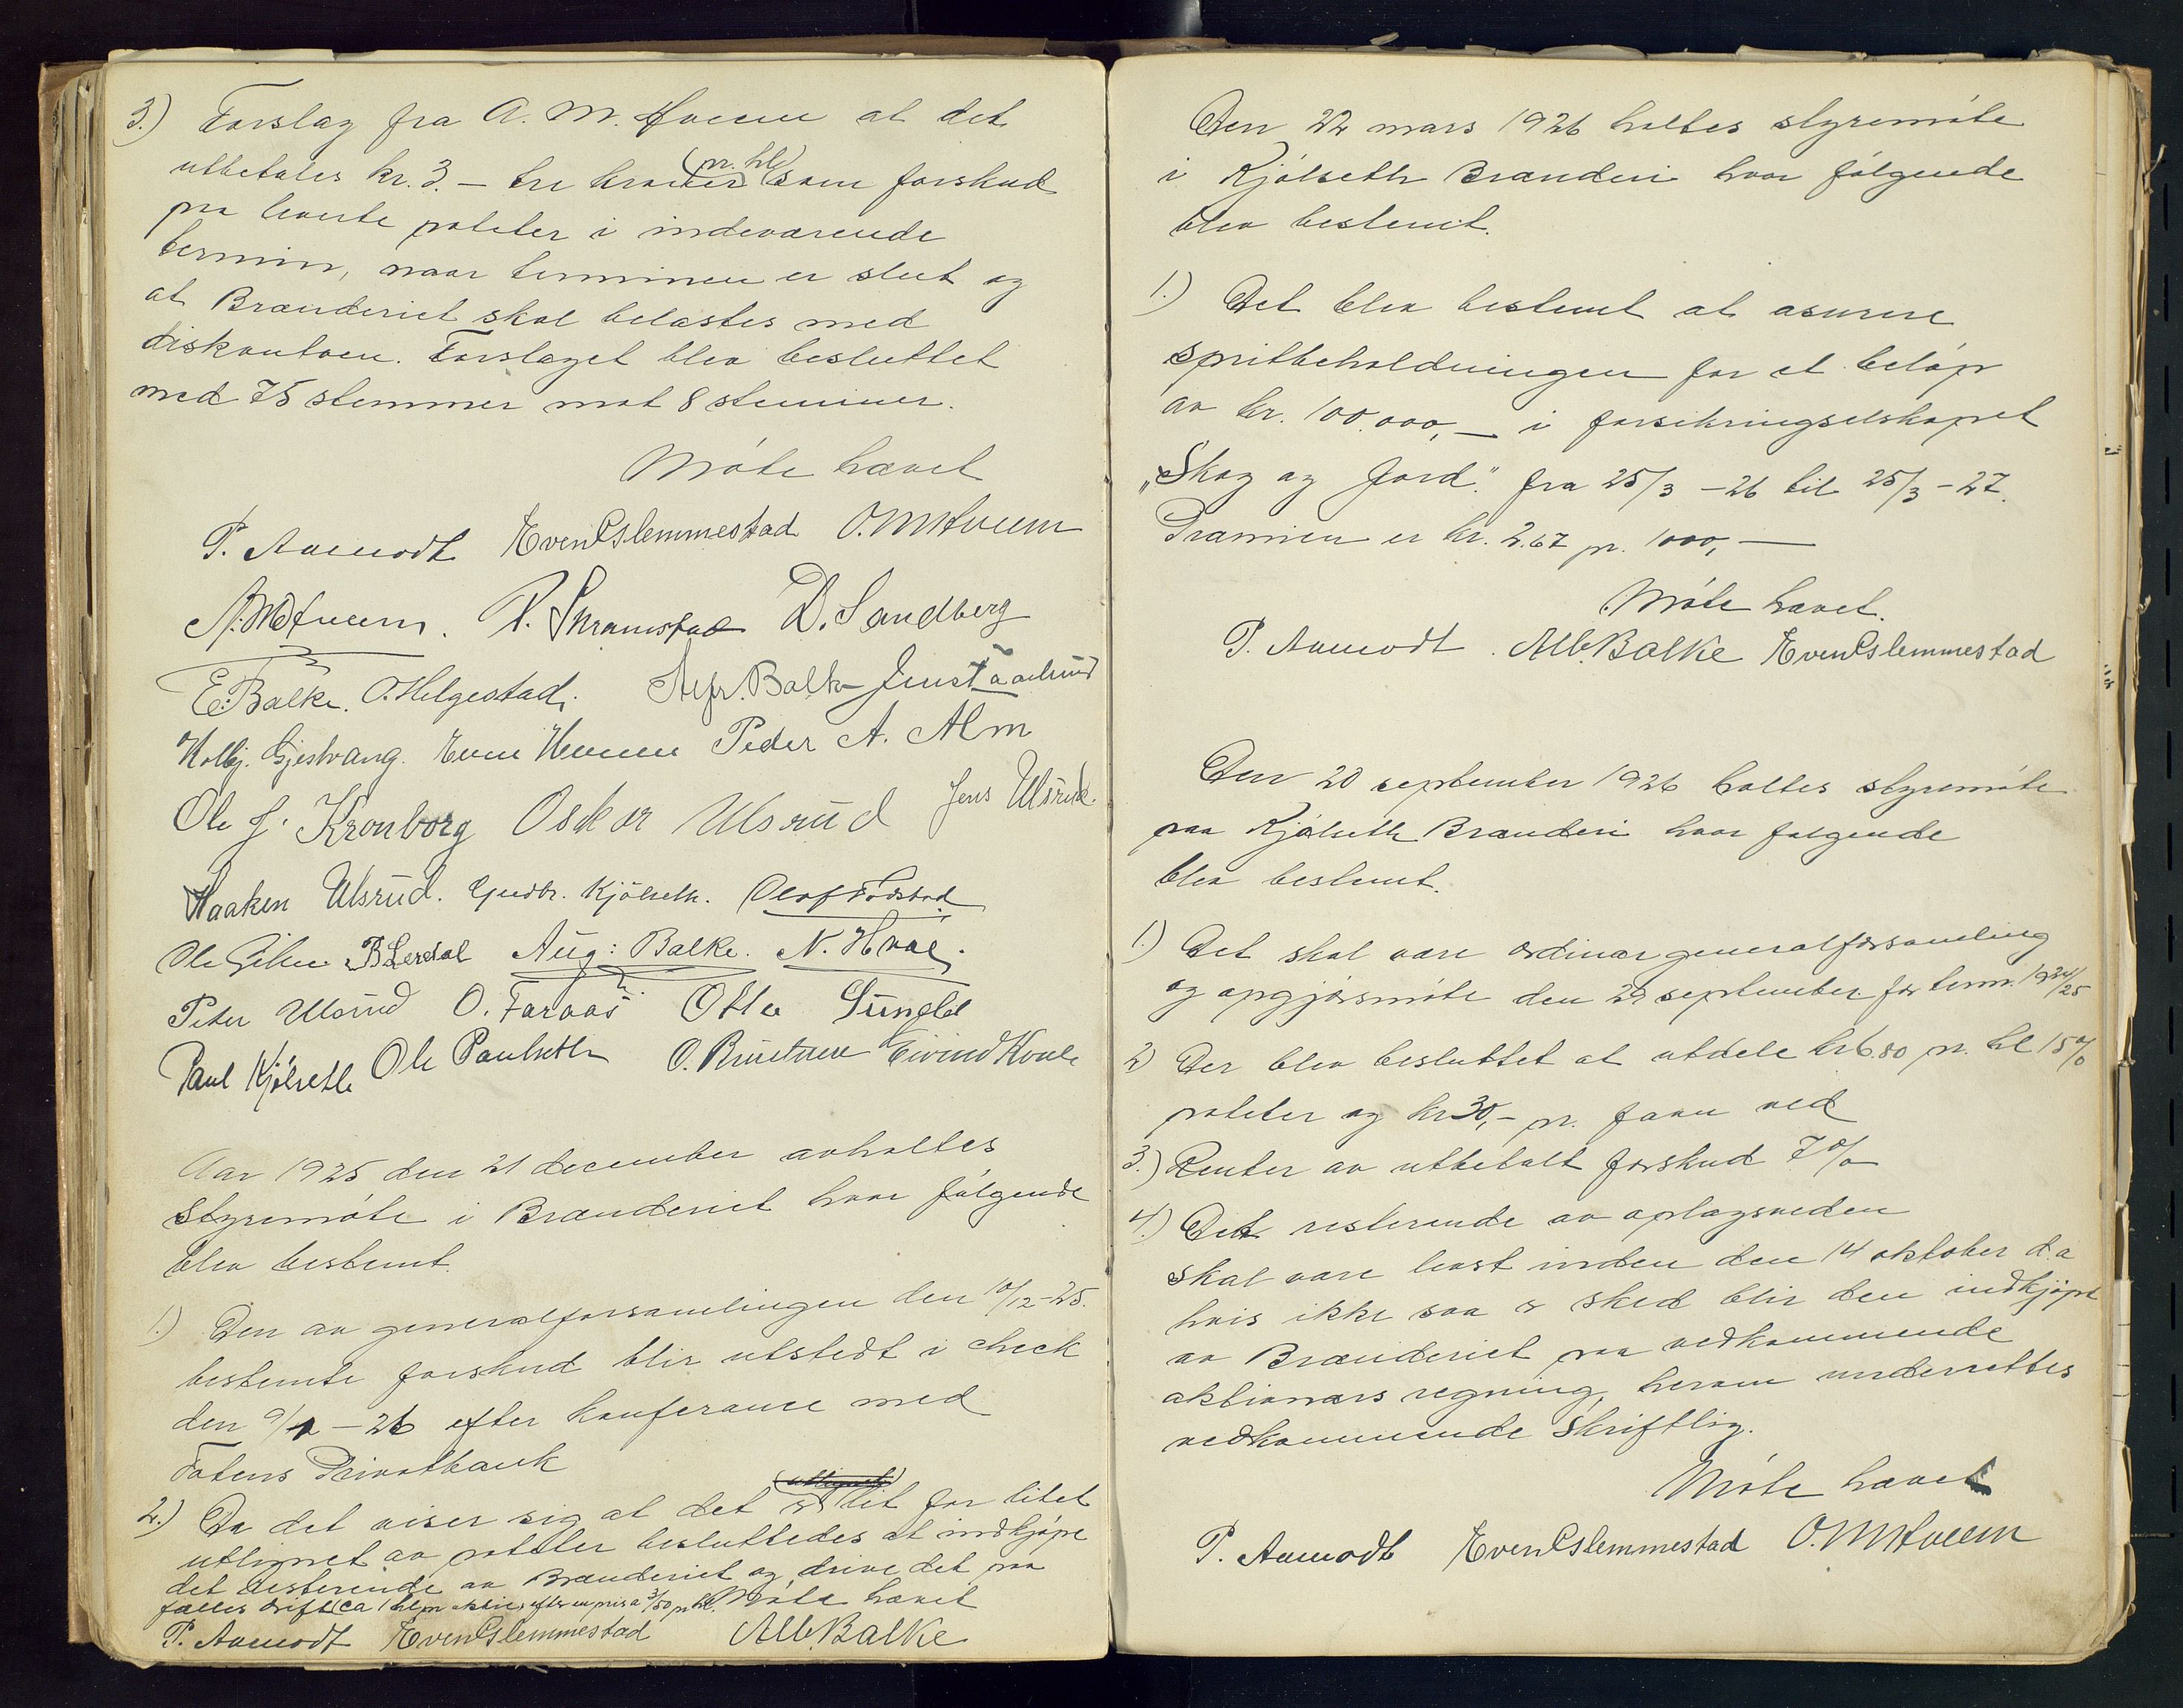 3.) Forslag fra A. M. Hveem at det
utbetales kr. 3.— tre kroner (pr. hl) som forskud
paa leverte poteter i indeværende
termin, naar terminen er slut og
at Brænderiet skal belastes med
diskontoen. Forslaget blev besluttet
med 75 stemmer mot 8 stemmer.
Møte hævet
P. Aamodt Even Eslemmestad O. M Hveem
A. M Hveem. P. Skramstad D. Sandberg
E. Balke. O. Helgestad. Alfr. Balke Jens Taarlerud
Holbj. Gjestvang. Even Hveem Peder A. Alm
Ole J. Kronborg Oskar Ulsrud Jens Ulsrud.
Haaken Ulsrud. Gudbr. Kjölseth. Olaf Fodstad
Ole Gihle B Lerdal Aug: Balke. N. Hval.
Peter Ulsrud O. Faraas Otto Sungld
Paul Kjölseth Ole Paulseth O. Eivind Houle
Aar 1925 den 21 december avholtes
Styremøte i Brænderiet hvor følgende
blev bestemt.
1.) Den av generalforsamlingen den 10/12-25.
bestemte forskud blir utstedt i check
den 9/1-26 efter konferance med
Totens Privatbank
2.) Da det viser sig at det er litt for litet
utlignet av poteter besluttedes at indkjøpe
det resterende av Brænderiet og drive det paa
fælles drift (ca 1 hl pr aktie) efter en pris a 3/50 pr hl. Møte hævet
P. Aamodt Even Eslemmestad Alb. Balke
Den 22 mars 1926 holtes styremøte
i Kjølseth Brænderi hvor følgende
blev bestemt.
1.) Det blev bestemt at asurere
spritbeholdningen for et beløp
av kr. 100.000,— i forsikringselskapet
„Skog og Jord." fra 25/3 -26 til 25/3 -27.
Præmien er kr. 2.67 pr. 1000,—
Møte hævet.
P. Aamodt. Alb. Balke Even Eslemmestad
Den 20 september 1926 holtes styremøte
paa Kjølseth Brænderi hvor følgende
blev bestemt.
1.) Det skal være ordinær generalforsamling
og opgjørsmøte den 29 september for term. 1924/25
2) Der blev besluttet at utdele kr 6.80 pr. hl 15%
poteter og kr 30,- pr. favn ved
3.) Renter av utbetalt forskud 7%
4.) Det resterende av oplagsveden
skal være levert inden den 14 oktober d.a
hvis ikke saa er sked blir den indkjøpt
av Brænderiet paa vedkommende
aktionærs regning, herom underrettes
vedkommende skriftlig.
Møte hævet
P. Aamodt Even Eslemmestad O. M Hveem